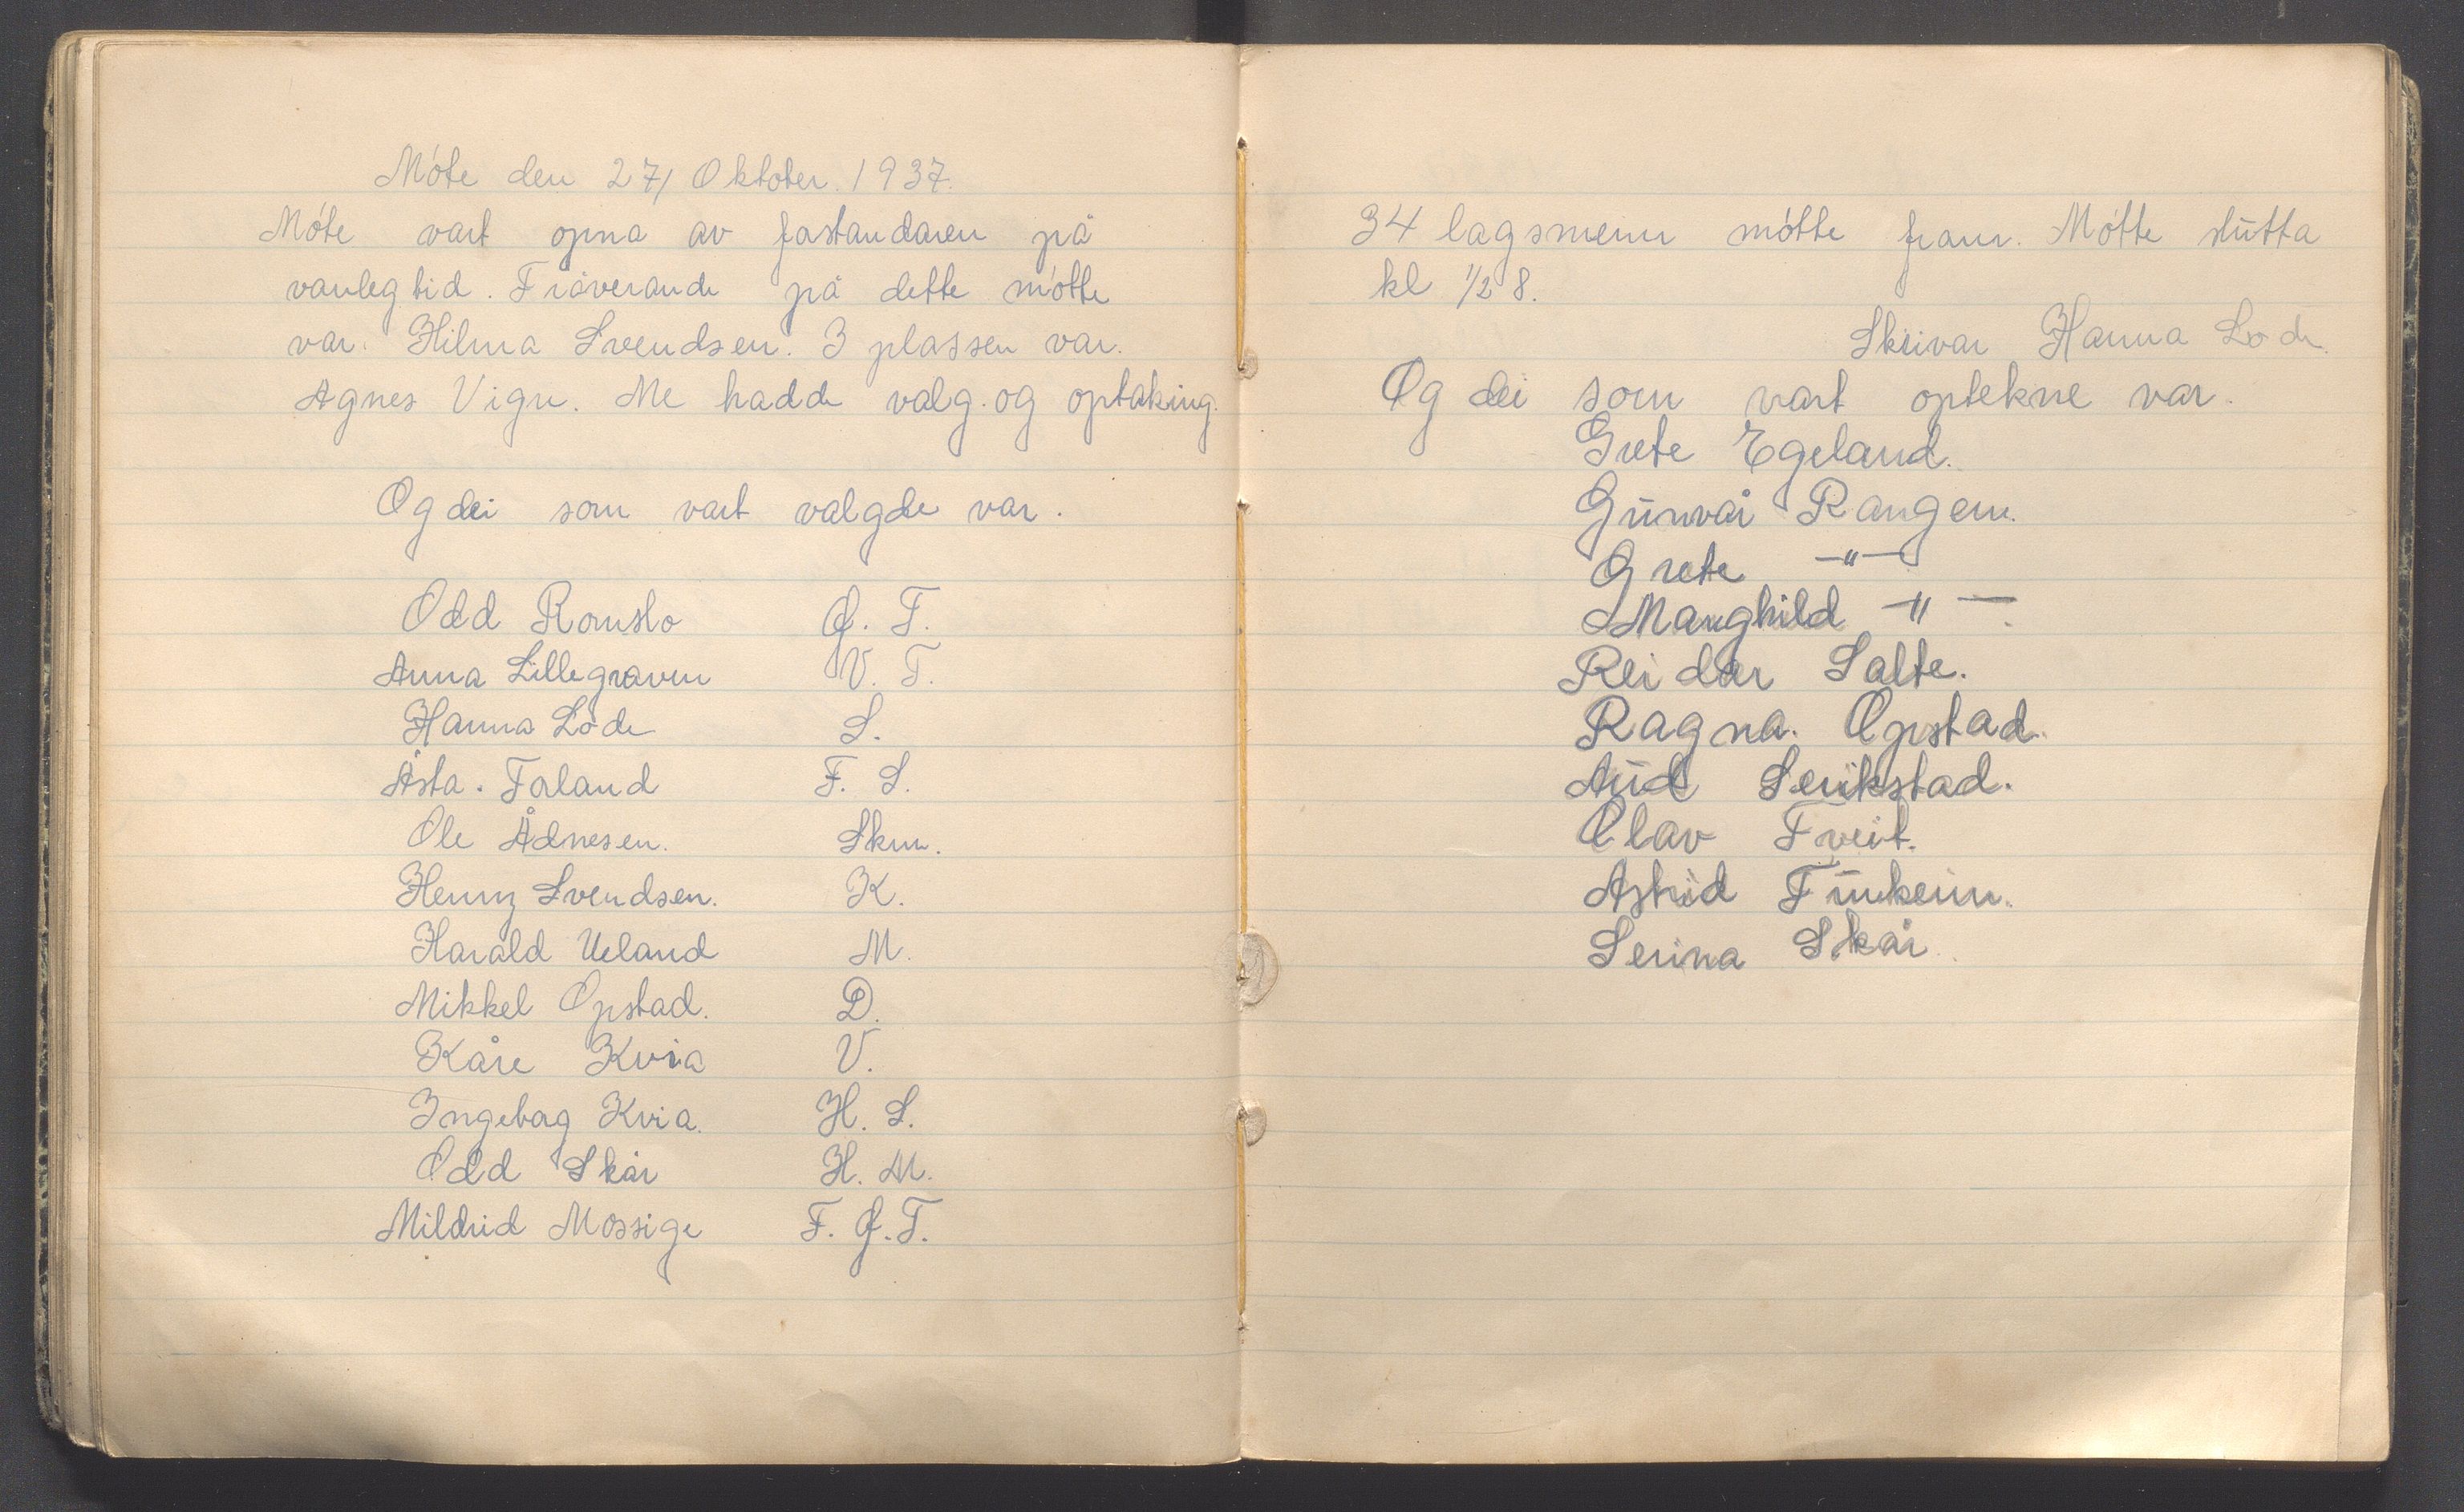 Móte den 27/ Oktober. 1937.
Móte vart opna av fastandaren på
vanlegtid. Fråverande på dette mótte
var. Hilma Svendsen. 3 plassen var.
Agnes Vigre. Me hadde valg. og optaking.
Og dei som vart valgde var.
Odd Romslo G. T.
Anna Lillegraven V. T.
Hanna Lode S.
Åsta. Forland F. S.
Ole Ådnesen. Skm.
Henny Svendsen. K.
Harald Ueland M.
Mikkel Opstad. D.
Kåre Kvia V.
Ingeborg Kvia. H. S.
Odd Skår H. M.
Mildrid Mossige F. G. T.
34 lagsmenn mótte fram. Mótte slutta
kl 1/2 8.
Skrivar Hanna Lode.
Og dei som vart optekne var.
Grete Egeland.
Gunvår Rangen.
Grete -"-
Manghild -"-
Reidar Salte.
Ragna. Opstad.
Aud Serikstad.
Olav Tveit.
Astrid Tunheim.
Serina Skår.